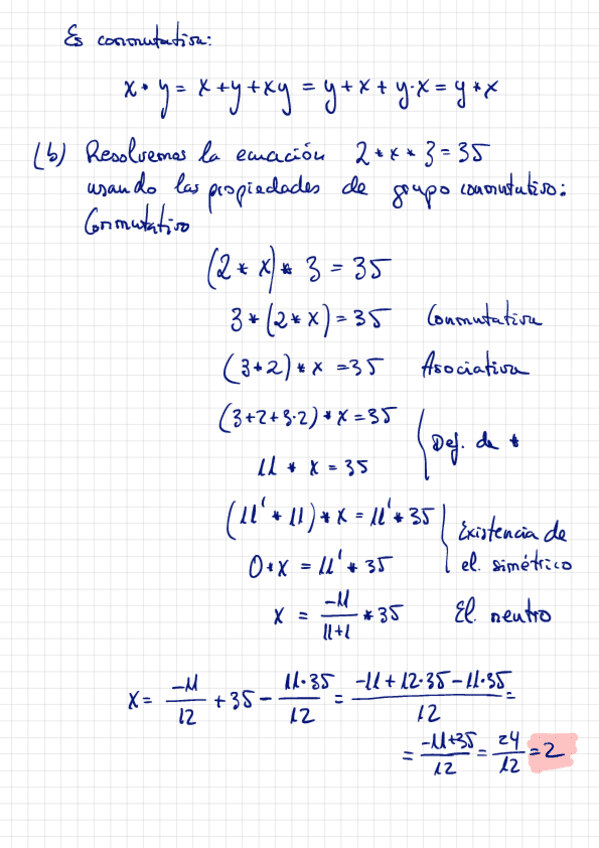 Es conmutativa:
x * y = x + y + xy = y + x + y·x = y * x
(b) Resolvemos la ecuación 2 * x * 3 = 35
usando las propiedades de grupo conmutativo:
Conmutativo
(2 * x) * 3 = 35
3 * (2 * x) = 35 Conmutativa
(3 * 2) * x = 35 Asociativa
(3 + 2 + 3·2) * x = 35
11 * x = 35 Def. de *
(11' * 11) * x = 11' * 35
0 * x = 11' * 35 Existencia de el. simétrico
x = -11/11+1 * 35 El. neutro
x = -11/12 + 35 - 11·35/12 = -11 + 12·35 - 11·35/12 =
= -11+35/12 = 24/12 = 2